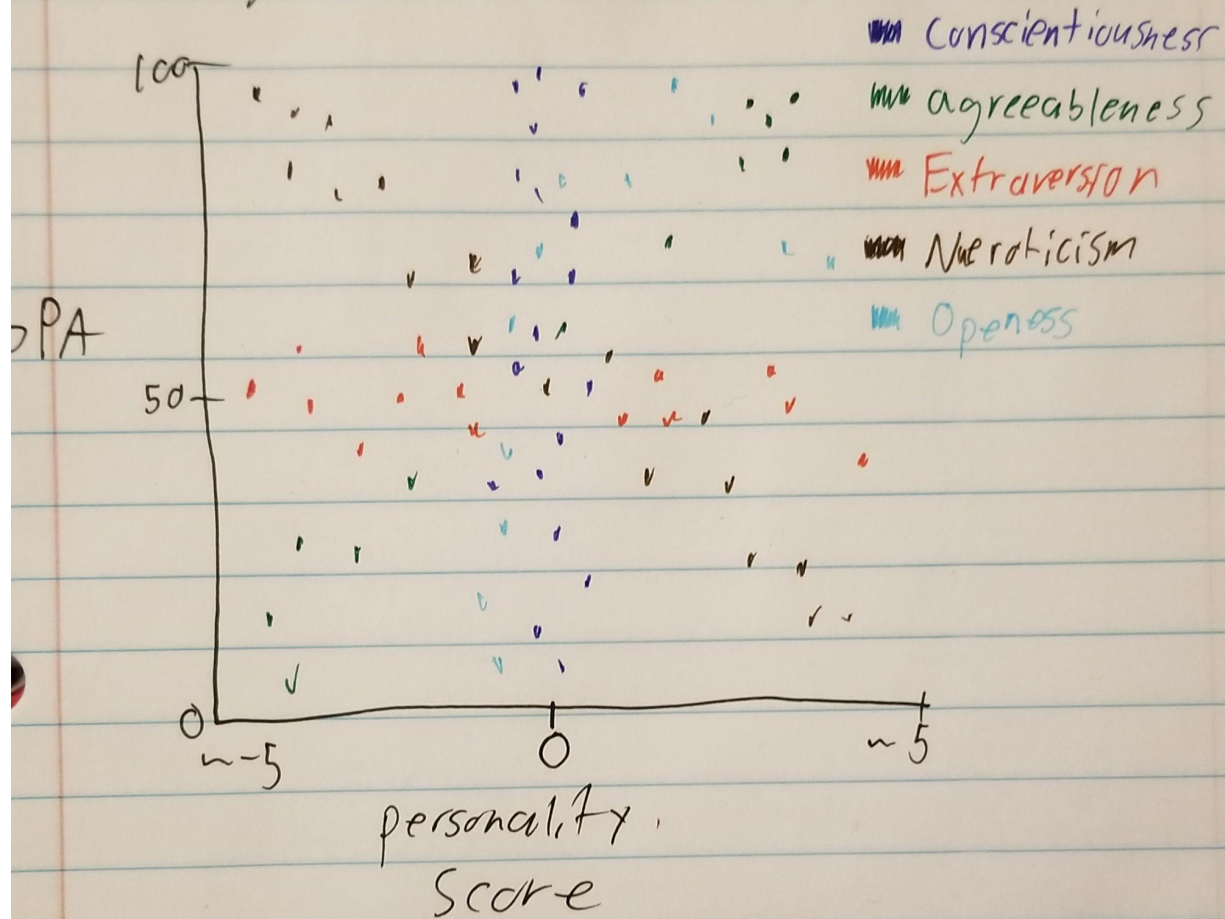 Conscientiousness
100
agreeableness
Extraversion
Nueroticism
Openess
PA
50
0
~-5
0
~5
personality
Score